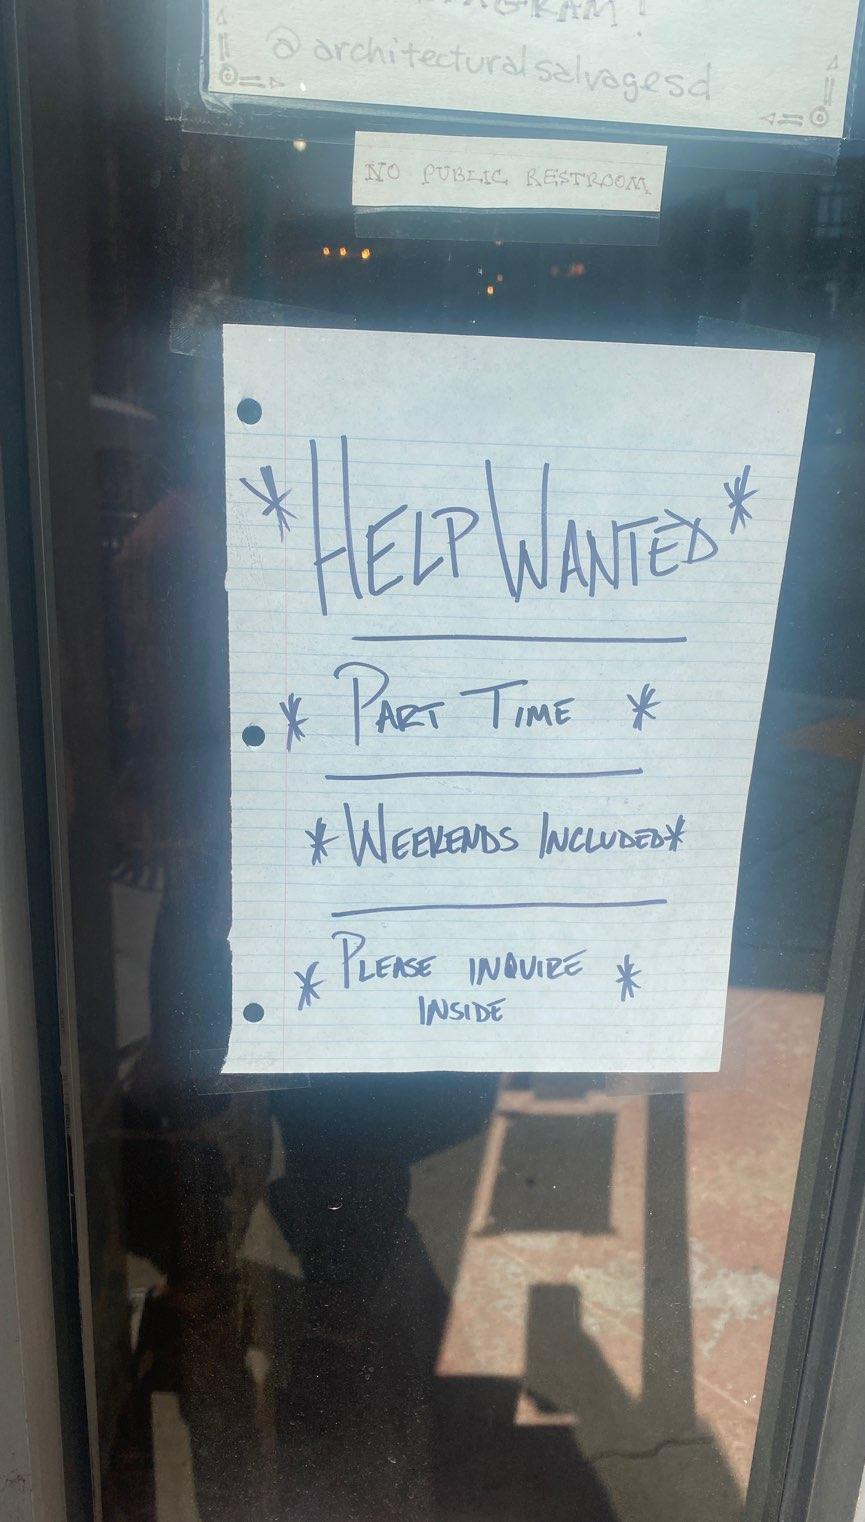 @architecturalsalvagesd
NO PUBLIC RESTROOM
* HELP WANTED *
* PART TIME *
* WEEKENDS INCLUDED *
* PLEASE INQUIRE *
INSIDE